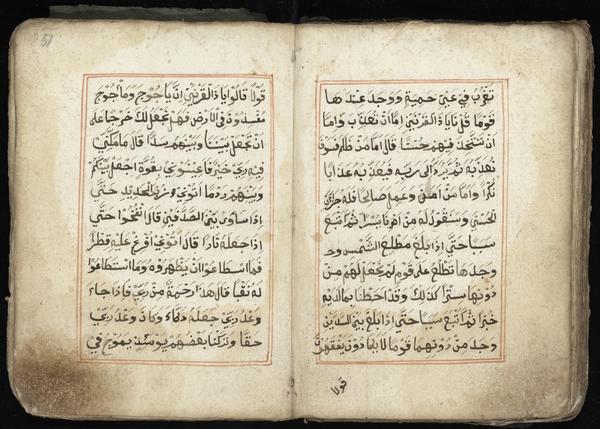 تغرب في عين حمية ووجد عندها
قوما قلنا ياذا القرنين اما ان تعذب واما
ان تتخذ فيهم حسنا قال اما من ظلم فسوف
نعذبه ثم يرد الى ربه فيعذبه عذابا
نكرا واما من امن وعمل صالحا فله جزاء
الحسنى وسنقول له من امرنا يسرا ثم اتبع
سببا حتى اذا بلغ مطلع الشمس
وجدها تطلع على قوم لم نجعل لهم من
دونها سترا كذلك وقد احطنا بما لديه
خبرا ثم اتبع سببا حتى اذا بلغ بين السدين
وجد من دونهما قوما لا يكادون يفقهون
قولا
قولا قالوا ياذا القرنين ان ياجوج وماجوج
مفسدون في الارض فهل نجعل لك خرجا على
ان تجعل بيننا وبينهم سدا قال ما مكنني
فيه ربي خير فاعينوني بقوة اجعل بينكم
وبينهم ردما اتوني زبر الحديد حتى
اذا ساوى بين الصدفين قال انفخوا حتى
اذا جعله نارا قال اتوني افرغ عليه قطرا
فما اسطاعوا ان يظهروه وما استطاعوا
له نقبا قال هذا رحمة من ربي فاذا جاء
وعد ربي جعله دكاء وكان وعد ربي
حقا وتركنا بعضهم يومئذ يموج في